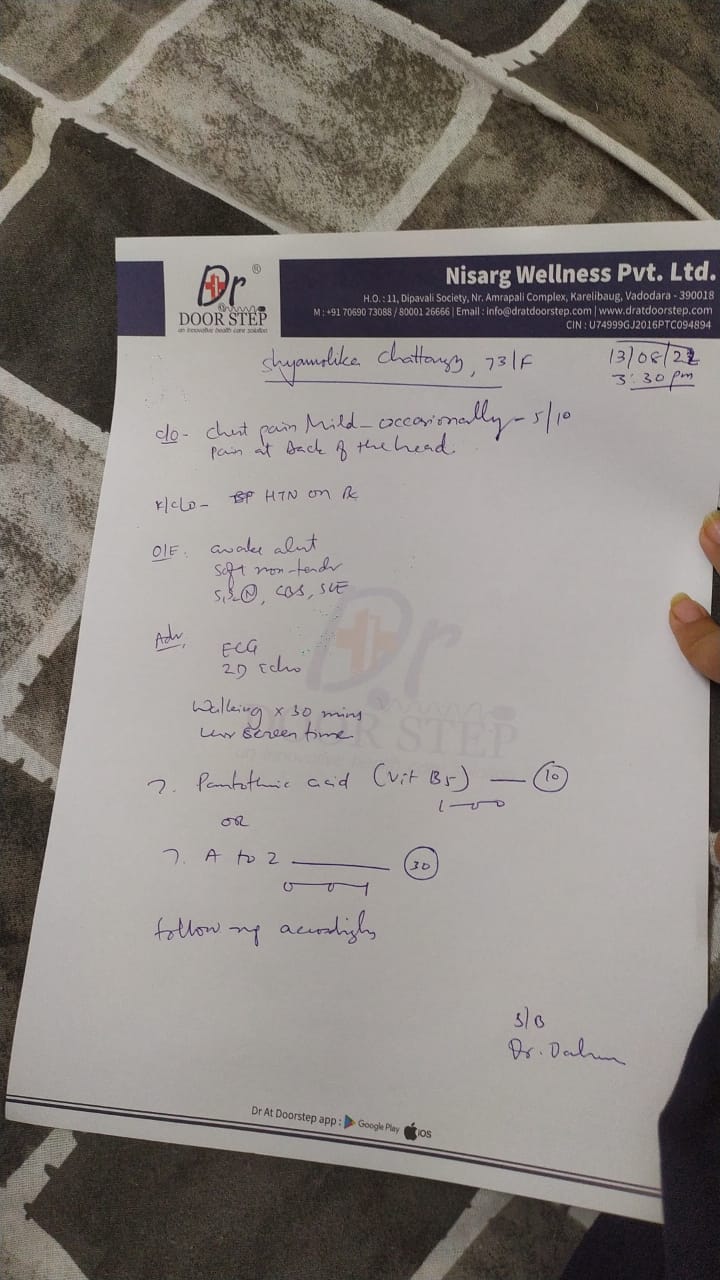 Dr ®
DOOR STEP
an innovative health care solution
Nisarg Wellness Pvt. Ltd.
H.O. : 11, Dipavali Society, Nr. Amrapali Complex, Karelibaug, Vadodara - 390018
M : +91 70690 73088 / 80001 26666 | Email : info@dratdoorstep.com | www.dratdoorstep.com
CIN : U74999GJ2016PTC094894
73/F
13/08/22
3:30 pm
c/o - chest pain Mild - occasionally - 5/10
pain at back of the head.
K/C/O - HTN on Rx
O/E. awake alert
soft non-tender
Adv,
ECG
2D Echo
Walking x 30 mins
screen time
Dr
DOOR STEP
Pantothenic acid (Vit B5) — 10
OR
A to Z — 30
follow
S/B
Dr.
Dr At Doorstep app : Google Play iOS